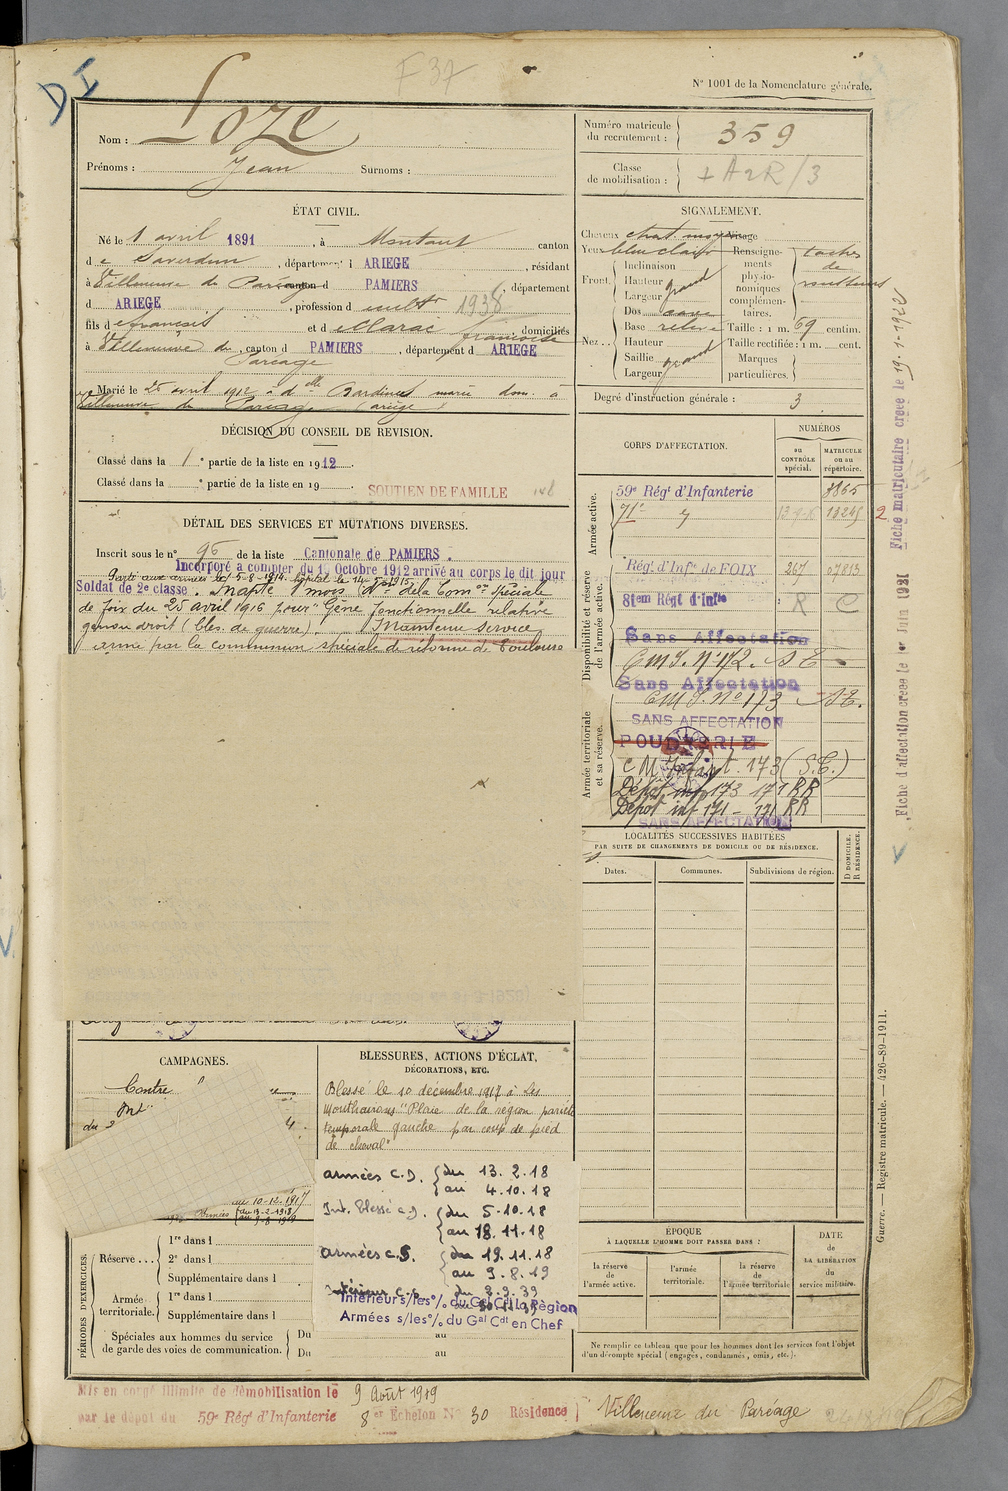 DI
F 37
N° 1001 de la Nomenclature générale.
Nom : Loze
Prénoms : Jean Surnoms :
Numéro matricule du recrutement : 359
Classe de mobilisation : + A2R/3
ÉTAT CIVIL.
Né le 1 avril 1891, à Montaut canton
de Saverdun, département d ARIEGE, résidant
à Villeneuve du Paréage canton d PAMIERS, département
d ARIEGE, profession de cultr 1938
fils de François et de Marac Françoise, domiciliés
à Villeneuve du Paréage, canton d PAMIERS, département d ARIEGE
Marié le 25 avril 1912 à dlle Bardines marie dom. à
Villeneuve du Paréage (Ariège)
DÉCISION DU CONSEIL DE REVISION.
Classé dans la 1e partie de la liste en 1912.
Classé dans la e partie de la liste en 19
SOUTIEN DE FAMILLE
DÉTAIL DES SERVICES ET MUTATIONS DIVERSES.
Inscrit sous le n° 96 de la liste Cantonale de PAMIERS.
Incorporé a compter du 1 Octobre 1912 arrivé au corps le dit jour
Parti aux armées le 5-8-1914. hôpital le 14-5-1915
Soldat de 2e classe. Inapte 1 mois Don de la Comon Spéciale
de foix du 25 avril 1916 pour "Gêne fonctionnelle relative
genou droit (bles. de guerre). Maintenu service
armé par la commission spéciale de réforme de Toulouse
SIGNALEMENT.
Cheveux chat. moy Visage
Yeux bleu clair
Front. Inclinaison
Hauteur grand
Largeur
Nez.. Dos cave
Base relevé
Hauteur
Saillie grand
Largeur
Renseignements physionomiques complémentaires. taches de rousseurs
Taille : 1 m. 69 centim.
Taille rectifiée : 1 m. cent.
Marques particulières.
Degré d'instruction générale : 3
CORPS D'AFFECTATION.
NUMÉROS
au CONTRÔLE spécial.
MATRICULE ou au répertoire.
Armée active.
59e Régt d'Infanterie 8865
71e 13245
2
Disponibilité et réserve de l'armée active.
Régt d'Infie de FOIX 267 07813
81em Régt d'Infie R C
Sans Affectation
C M I. N° 172. S E
Sans Affectation
Armée territoriale et sa réserve.
C M I. N° 173 S E.
SANS AFFECTATION
POUDRERIE
C M Infant. 173 (S.E.)
Dépôt inf 173 171 RR
Dépôt inf 171 – 171 RR
SANS AFFECTATION
LOCALITÉS SUCCESSIVES HABITÉES
PAR SUITE DE CHANGEMENTS DE DOMICILE OU DE RÉSIDENCE.
D DOMICILE. R RÉSIDENCE.
Dates. Communes. Subdivisions de région.
Fiche matriculaire créée le 19.1.1922
Fiche d'affectation créée le 1er Juin 1931
CAMPAGNES.
Contre
Int
du 2
4.
au 10-12-1917
Armées du 13-2-1918
au 9-8-1919
BLESSURES, ACTIONS D'ÉCLAT,
DÉCORATIONS, ETC.
Blessé le 10 décembre 1917 à Les
Monthairons "Plaie de la région pariéto
temporale gauche par coup de pied
de cheval"
armées C.D. du 13.2.18
au 4.10.18
Int. Blessé C.D. du 5.10.18
au 18.11.18
armées C.S. du 19.11.18
au 9.8.19
Intérieur C.S. du 3.9.39
Intérieur s/les °/. du Gal Cdt la Région
Armées s/les °/. du Gal Cdt en Chef
PÉRIODES D'EXERCICES.
Réserve... 1re dans l
2e dans l
Supplémentaire dans l
Armée territoriale. 1re dans l
Supplémentaire dans l
Spéciales aux hommes du service de garde des voies de communication.
Du au
Du au
ÉPOQUE
À LAQUELLE L'HOMME DOIT PASSER DANS :
la réserve de l'armée active.
l'armée territoriale.
la réserve de l'armée territoriale
DATE de LA LIBÉRATION du service militaire.
Ne remplir ce tableau que pour les hommes dont les services font l'objet
d'un décompte spécial (engagés, condamnés, omis, etc.).
Guerre. — Registre matricule. — 426-89-1911.
Mis en congé illimité de démobilisation le 9 Août 1919
par le dépôt du 59e Régt d'Infanterie 8er Échelon N° 30 Résidence Villeneuve du Paréage